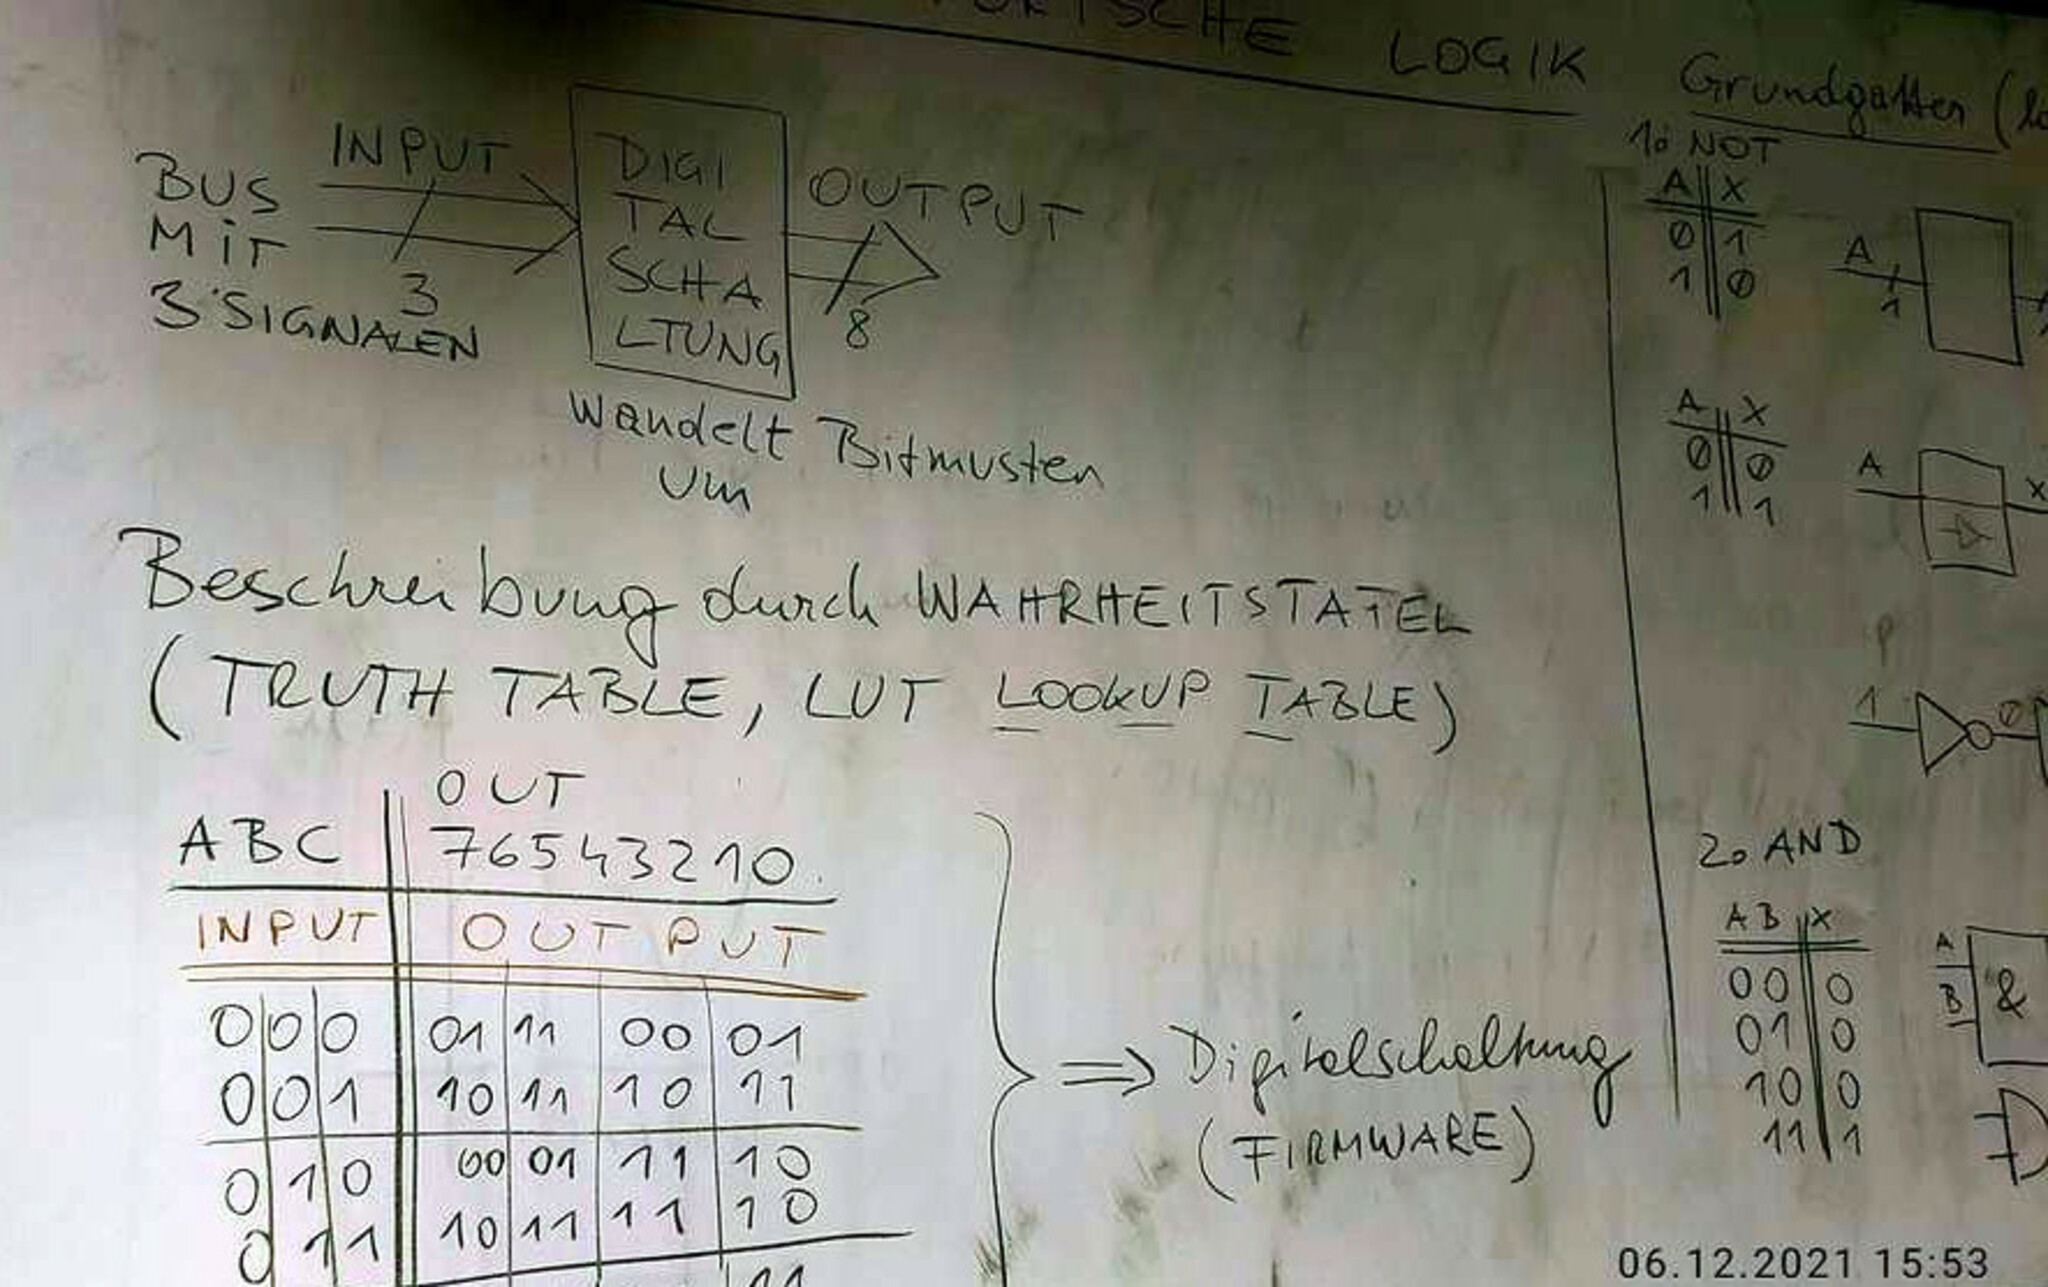 LOGIK
BUS
MIT
3 SIGNALEN
INPUT
3
DIGI
TAL
SCHA
LTUNG
OUTPUT
8
Wandelt Bitmuster
um
Beschreibung durch WAHRHEITSTAFEL
(TRUTH TABLE, LUT LOOKUP TABLE)
OUT
ABC 76543210
INPUT OUTPUT
0 0 0 01 11 00 01
0 0 1 10 11 10 11
0 1 0 00 01 11 10
0 1 1 10 11 11 10
11
=> Digitalschaltung
(FIRMWARE)
Grundgatter (lo
1. NOT
A X
0 1
1 0
A
1
A X
0 0
1 1
A X
1 0
2. AND
A B X
0 0 0
0 1 0
1 0 0
1 1 1
A
B
&
06.12.2021 15:53